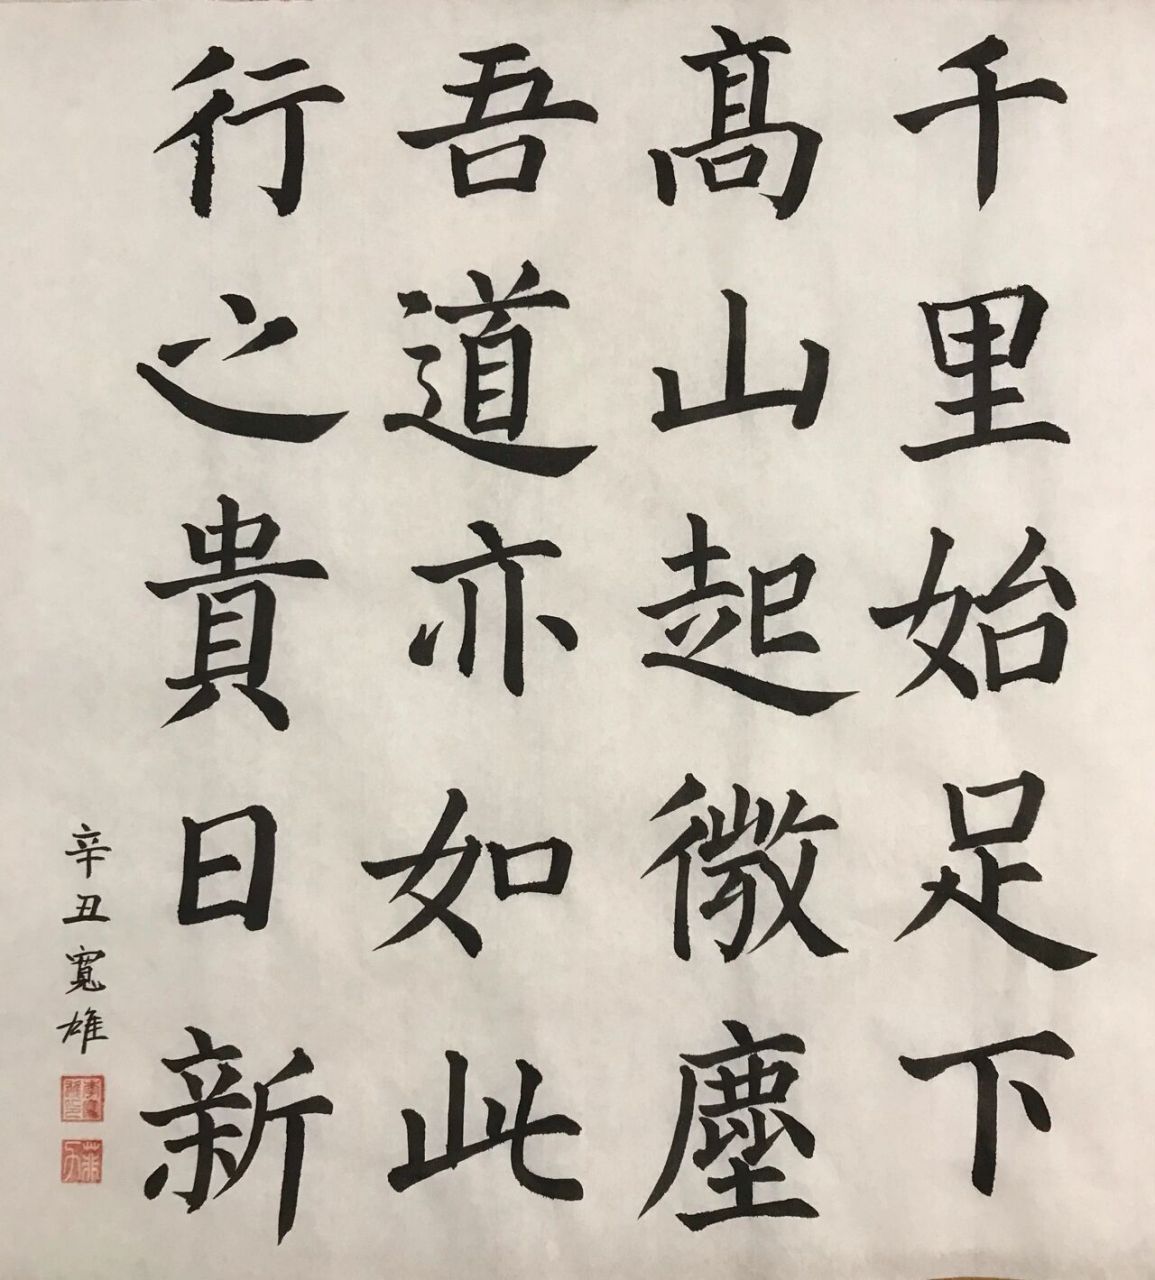 千里始足下
髙山起微塵
吾道亦如此
行之貴日新
辛丑寬雄